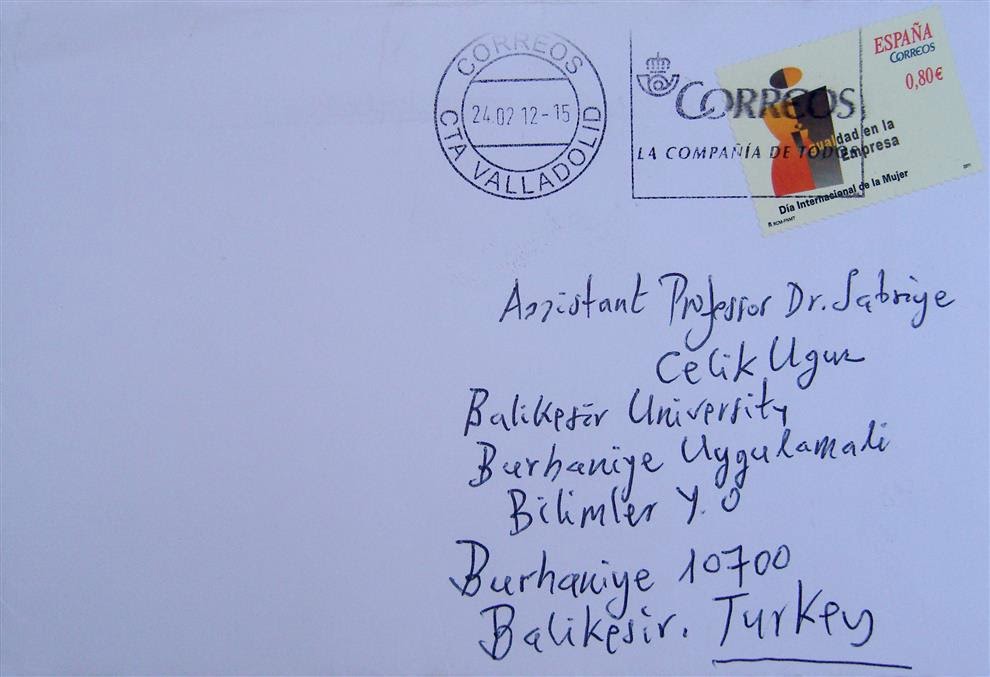 CORREOS
24.02 12-15
CTA VALLADOLID
CORREOS
LA COMPAÑÍA DE TODOS
ESPAÑA
CORREOS
0,80€
igualdad en la
Empresa
Día Internacional de la Mujer
RCM-FNMT
2011
Assistant Professor Dr. Sabriye
Celik Uguz
Balikesir University
Burhaniye Uygulamali
Bilimler Y.O
Burhaniye 10700
Balikesir. Turkey